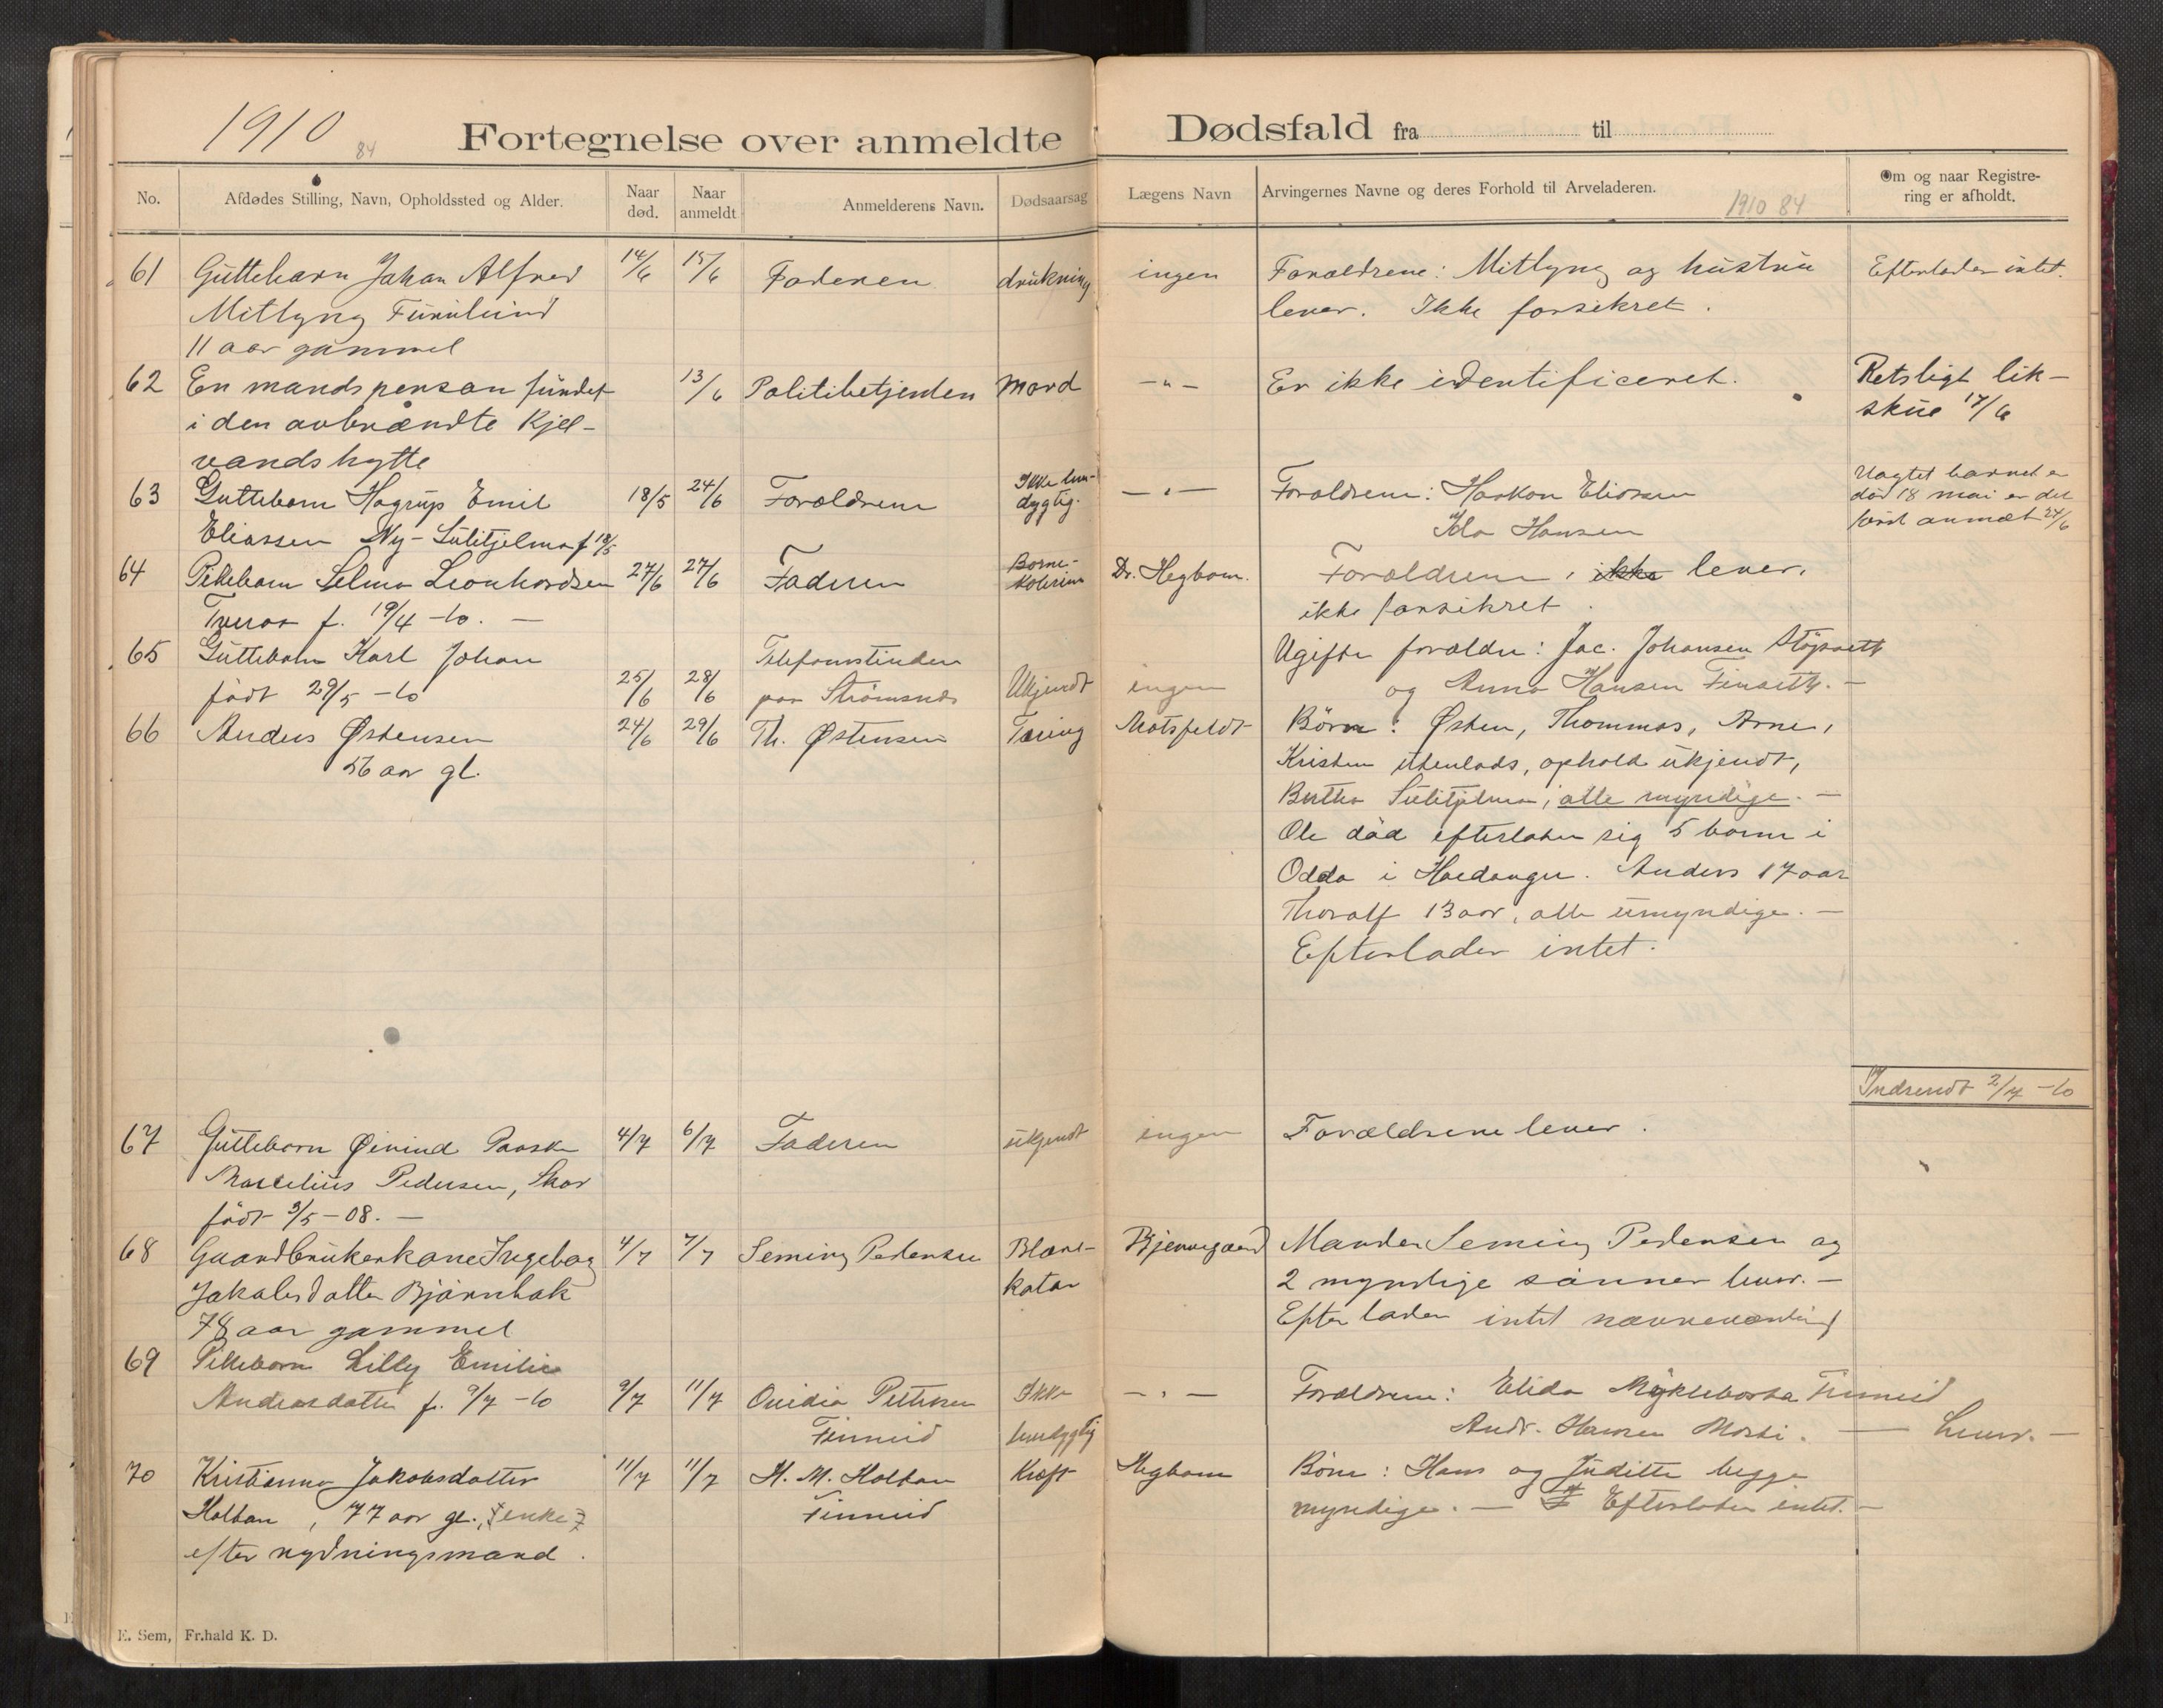 1910
84
Fortegnelse over anmeldte Dødsfald fra til
No. Afdødes Stilling, Navn, Opholdssted og Alder. Naar død. Naar anmeldt Anmelderens Navn. Dødsaarsag Lægens Navn Arvingernes Navne og deres Forhold til Arveladeren. Om og naar Registrering er afholdt.
1910 84
61 Guttebarn Johan Alfred 14/6 15/6 Faderen drukning ingen Forældrene: Mitlyng og hustru Efterlader intet.
Mitlyng Furulund lever. Ikke forsikret.
11 aar gammel
62 En mandsperson fundet 13/6 Politibetjenten Mord -"- Er ikke identificeret. Retsligt lik-
i den avbrændte Kjel- skue 17/6
vandshytte
63 Guttebarn Hagrup Emil 18/5 24/6 Forældrene Ikke leve-
dygtig. -"- Forældrene: Haakon Eliassen Uagtet barnet er
død 18 mai er det
Eliassen Ny-Sulitjelma f 18/5 Ida Hansen først anmeldt 24/6
64 Pikebarn Selma Leonhardsen 27/6 27/6 Faderen Børne-
kolerine Dr. Hegbom. Forældrene, ikke lever,
Tveraa f. 19/4 -10. — ikke forsikret.
65 Guttebarn Karl Johan Telefonstinden Ugifte forældre: Jac. Johansen Støpsett
født 29/5 -10 25/6 28/6 paa Strømsnes Ukjendt ingen og Anna Hansen Finseth. —
66 Anders Østensen 24/6 29/6 Th. Østensen Tæring Motsfeldt Børn: Østen, Thommas, Arne,
56 aar gl. Kristen utenlads, ophold ukjendt,
Bertha Sulitjelma, alle myndige. —
Ole død efterlater sig 5 børn i
Odda i Hardanger. Anders 17 aar
Thoralf 13 aar, alle umyndige. —
Efterlader intet.
Indsendt 2/7 -10
67 Guttebarn Øivind Paaske 4/7 6/7 Faderen ukjendt ingen Forældrene lever.
Marcelius Pedersen, Skar
født 3/5 -08. —
68 Gaardbrukerkone Ingeborg 4/7 7/7 Seming Pedersen Blære- Bjerregaard Manden Seming Pedersen og
Jakobsdatter Bjørnbak katar 2 myndige sønner lever. —
78 aar gammel Efterlader intet nævneværdig
69 Pikebarn Lilly Emilie
Andreasdatter f. 9/7 -10 9/7 11/7 Ovidia Pettersen Ikke -"- Forældrene: Elida Mykleborsta Finneid
Finneid levedygtig Andr. Hansen Mosti. — Lever. —
70 Kristianna Jakobsdatter 11/7 11/7 H. M. Holtan Kræft Hegbom Børn: Hans og Juditte begge
Holtan, 77 aar gl., enke Finneid myndige. — Efterlater intet. —
efter rydningsmand.
E. Sem, Fr.hald K. D.